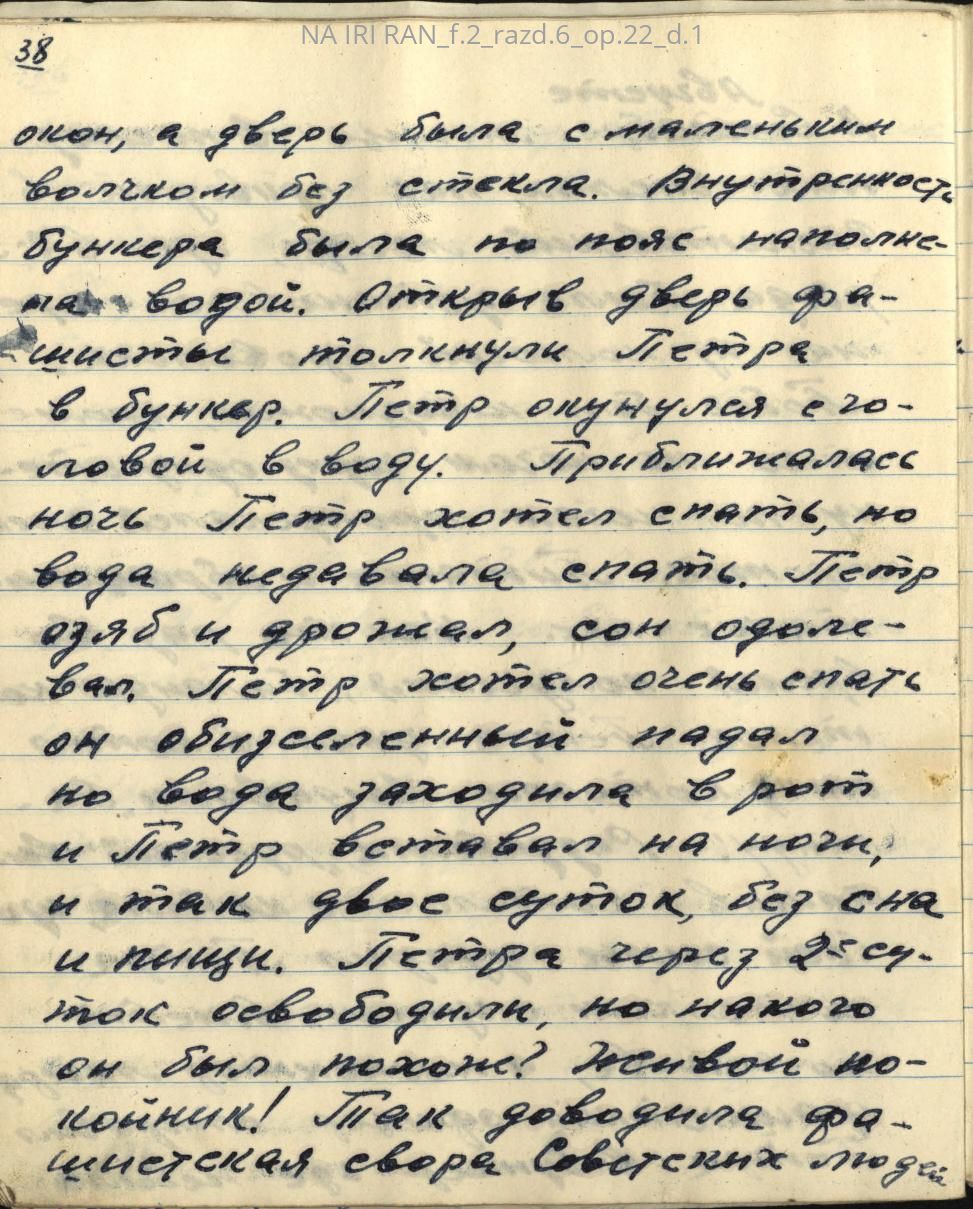 NA IRI RAN_f.2_razd.6_op.22_d.1
38
окон, а дверь была с маленьким
волчком без стекла. Внутренность
бункера была по пояс наполне-
на водой. Открыв дверь фа-
шисты толкнули Петра
в бункер. Петр окунулся с го-
ловой в воду. Приближалась
ночь Петр хотел спать, но
вода недавала спать. Петр
озяб и дрожал, сон одоле-
вал. Петр хотел очень спать
он обизселенный падал
но вода заходила в рот
и Петр вставал на ночи,
и так двое суток, без сна
и пищи. Петра через 2е су-
ток освободили, но накого
он был похож? Живой по-
койник! Так доводила фа-
шистская свора Советских людей